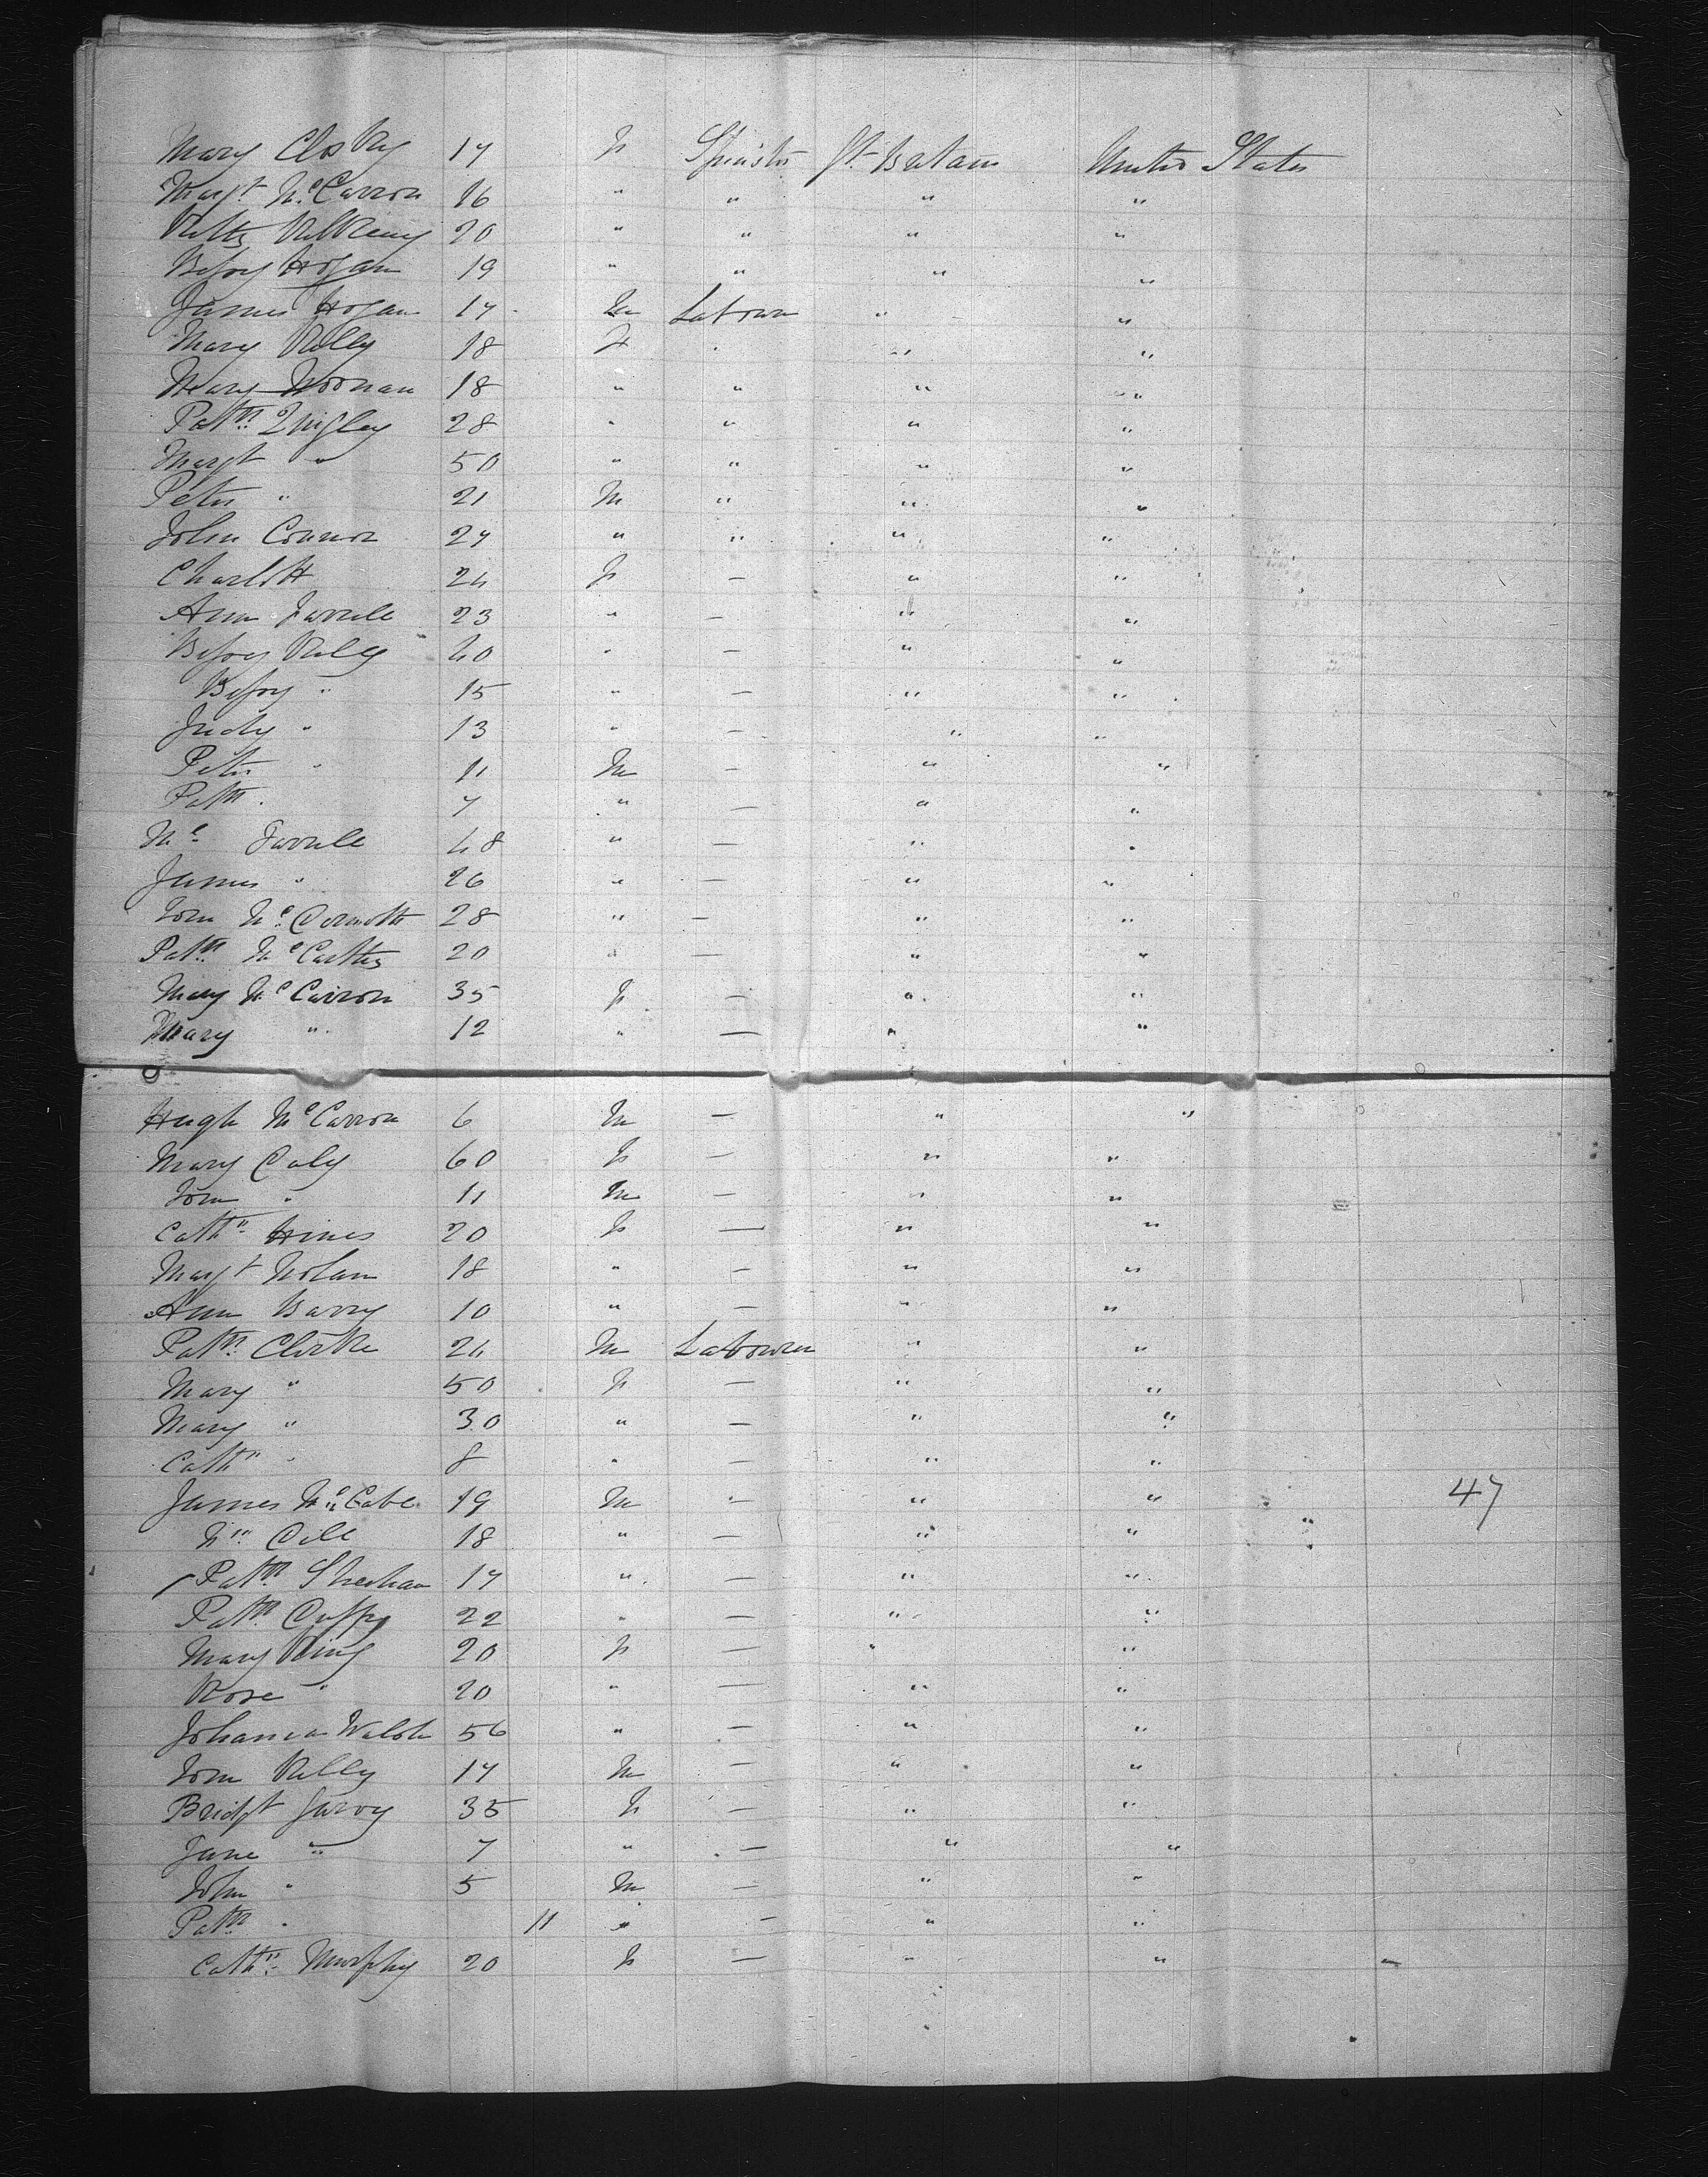 Mary Closky 17 F Spinster Gt Britain United States
Margt McCarron 16 " " " "
Kitty Kilkenny 20 " " " "
Betsy Hogan 19 " " " "
James Hogan 17 M Labourer " "
Mary Kelly 18 F " " "
Mary Noonan 18 " " " "
Patk Quigley 28 " " " "
Margt " 50 " " " "
Peter " 21 M " " "
John Connor 27 " " " "
Charlott 24 F — " "
Ann Farrell 23 " — " "
Betsy Kelly 40 " — " "
Betsy " 15 " — " "
Judy " 13 " — " "
Peter " 11 M — " "
Patk " 7 " — " "
Farrell 48 " — " "
James " 26 " — " "
Tom McDermott 28 " — " "
Patk McCarthy 20 " — " "
Mary McCarron 35 F — " "
Mary " 12 " — " "
Hugh McCarron 6 M — " "
Mary Caly 60 F — " "
Tom " 11 M — " "
Cathn Hines 20 F — " "
Margt Nolan 18 " — " "
Ann Barry 10 " — " "
Patk Clarke 24 M Labourer " "
Mary " 50 F — " "
Mary " 30 " — " "
Cathn " 8 " — " "
James McCabe 19 M — " " 47
18 " — " "
Patk Sheehan 17 " — " "
Patk Cuffy 22 " — " "
Mary King 20 F — " "
Rose " 20 " — " "
Johanna Walsh 56 " — " "
Tom Kelly 17 M — " "
Bridgt Garvy 35 F — " "
Jane " 7 " — " "
John " 5 M — " "
Patk " 11 " — " "
Cathn Murphy 20 F — " "